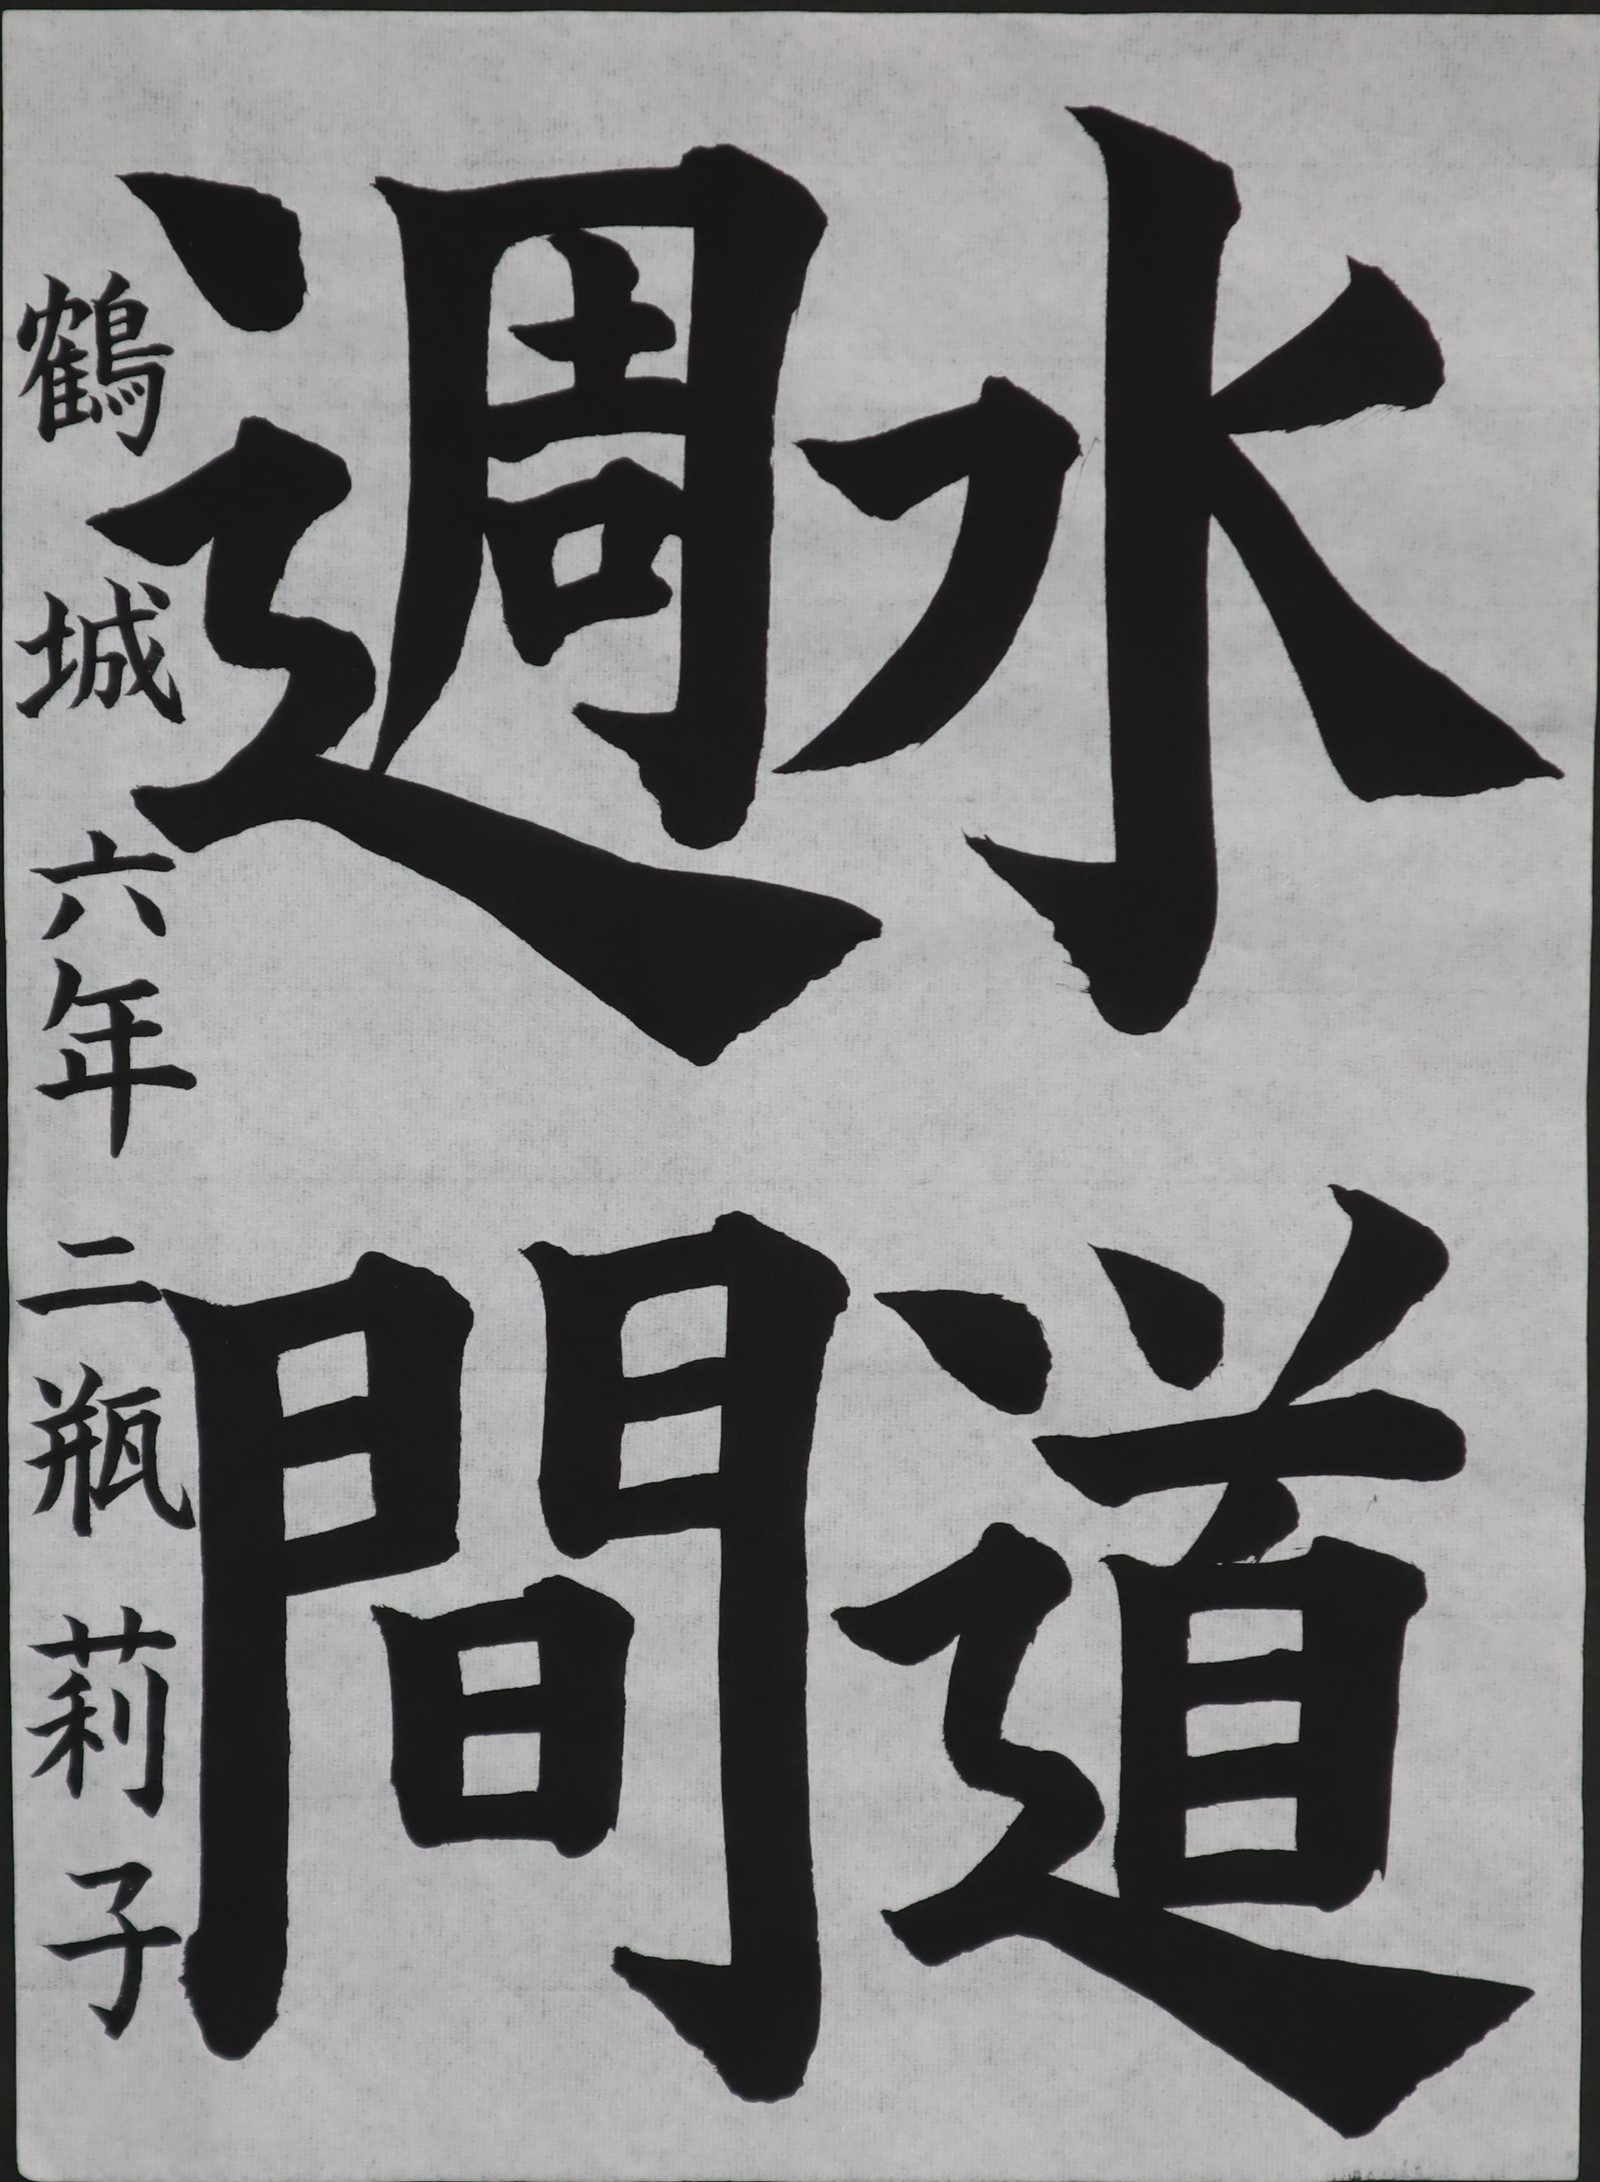 水道
週間
鶴城 六年 二瓶 莉子